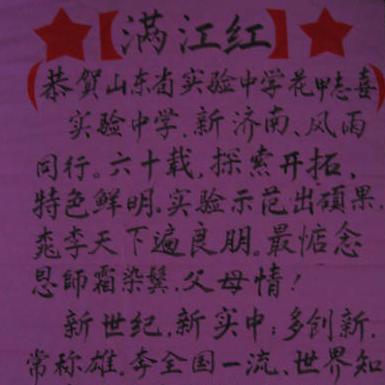 【满江红】
(恭贺山东省实验中学花甲志喜)
实验中学,新济南、风雨
同行。六十载,探索开拓,
特色鲜明。实验示范出硕果,
桃李天下遍良朋。最惦念
恩師霜染鬓,父母情!
新世纪,新实中;多创新,
常称雄。李全国一流、世界知